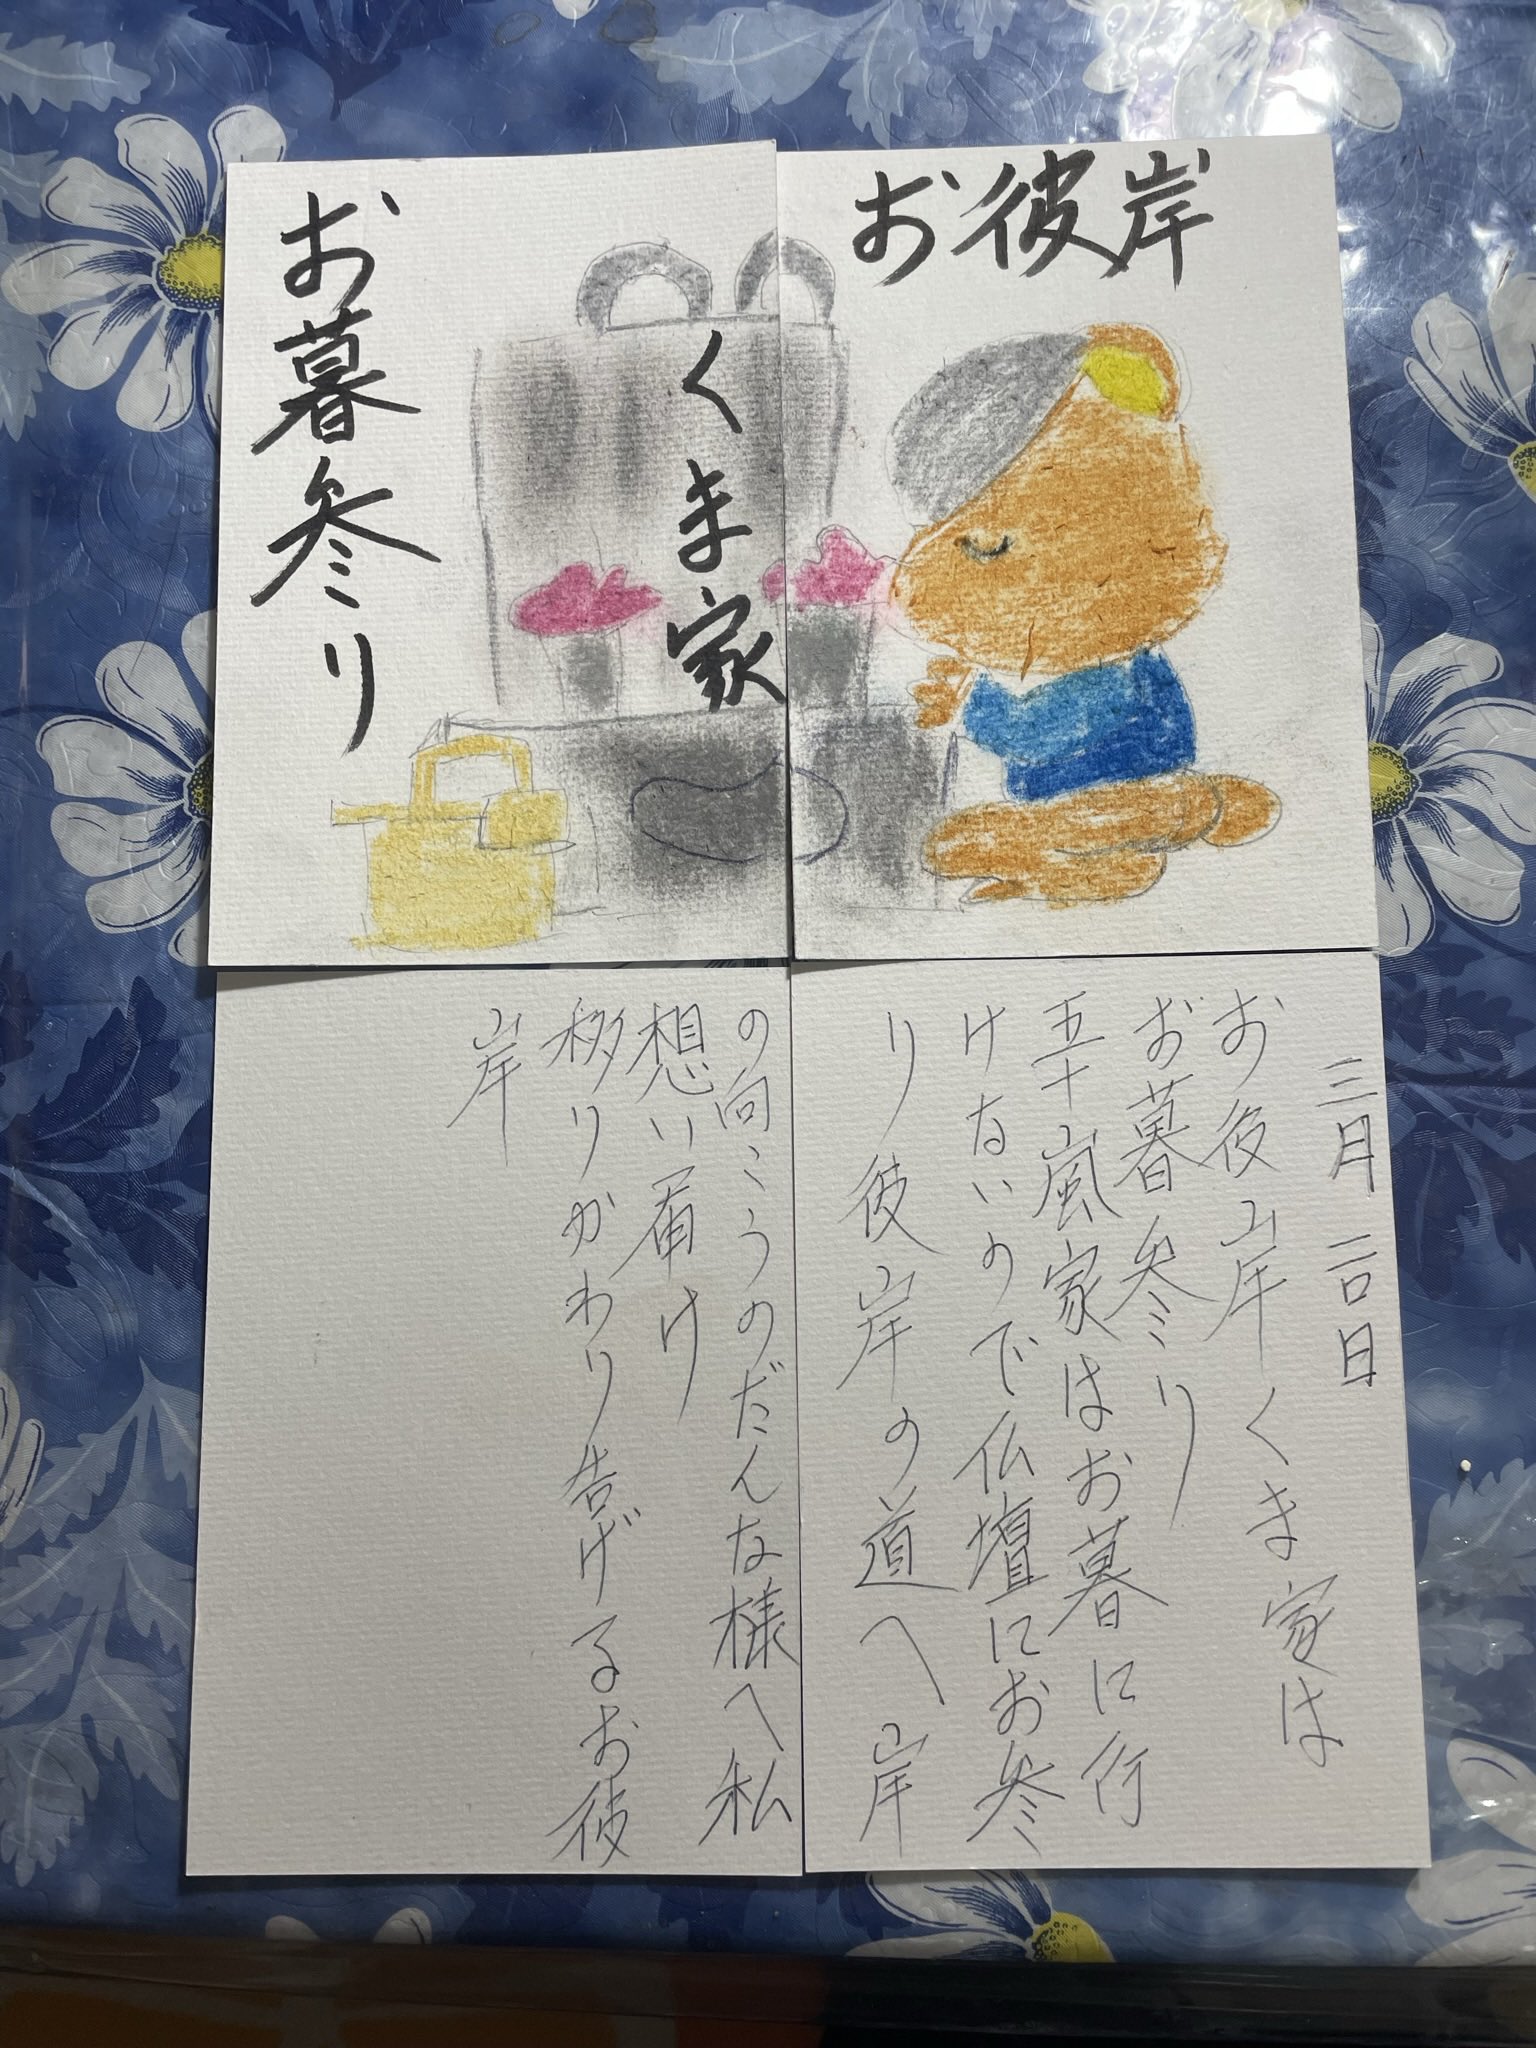 お彼岸
くま家
お暮参り
三月二〇日
お彼岸くま家は
お暮参り
五十嵐家はお暮に行
けないので仏壇にお参
り彼岸の道へ岸
の向こうのだんな様へ私
想い届け
移りかわり告げるお彼
岸